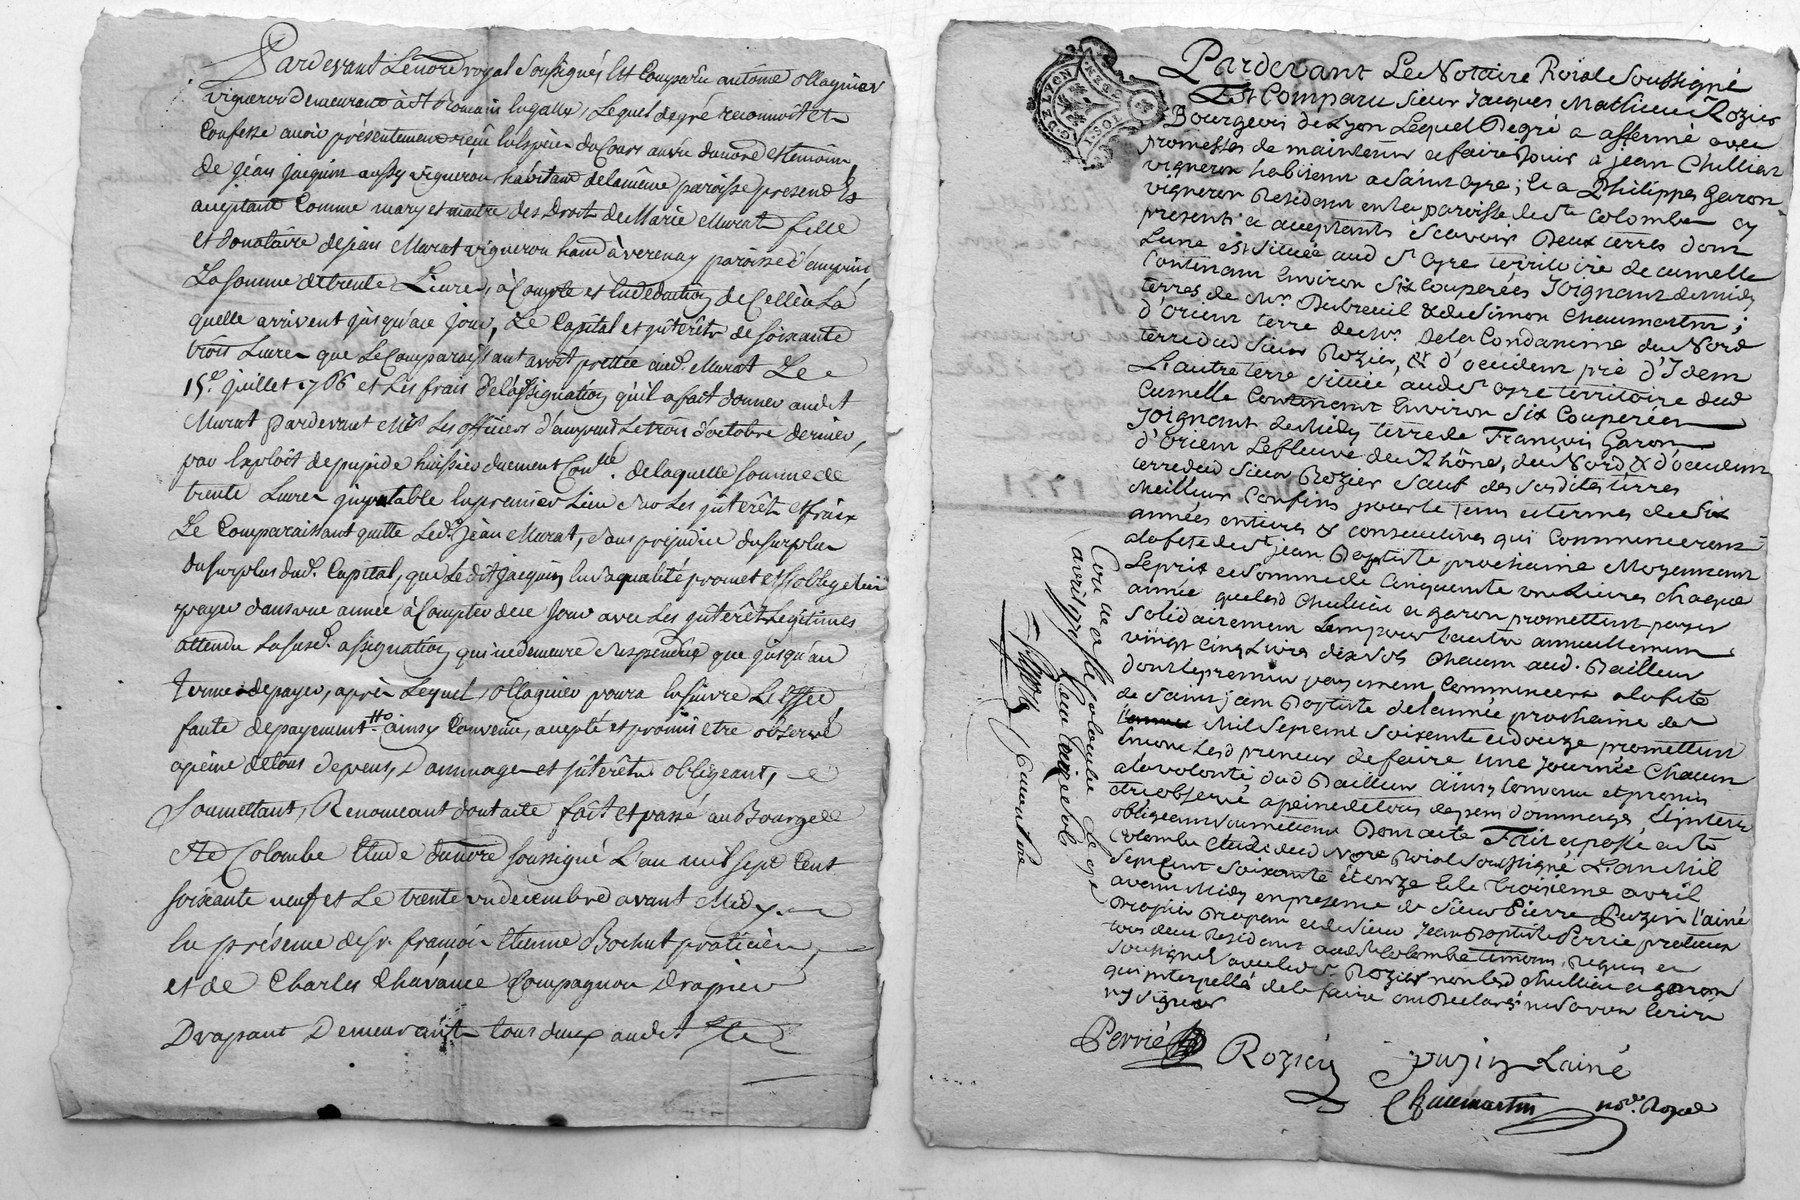 Pardevant Lenore royal Soussignés Est Comparu antoine ollagnier
vigneron demeurant à St Romain lagalla, Lequel de gré reconnoît et
Confesse avoir présentement reçu En Espèce du Cours au vu dunore et témoins
de jean jacquin aussy vigneron habitant de la même paroisse present Et
aceptant Comme mary et maitre des Droits de Marie Murat fille
et donataire de jean Murat vigneron hant à verenay paroisse d'ampuis
La Somme de trente Livres, à Compte et En deduction de Celle à La
quelle arrivent jusqu'à ce jour, Le Capital et jnterêts de soixante
trois Livres que Le Comparoissant avoit prettée aud. Murat Le
15e juillet 1766 et Les frais de l'assignation qu'il a fait donner audit
Murat pardevant Mrs Les officiers d'ampuis Le trois d'octobre dernier,
par Exploit de huissier duement Conllé de laquelle somme de
trente Livres jmputable En premier Lieu Sur Les jnterêts et fraix
Le Comparaissant quitte Led. jean Murat, sans prejudice du surplus
du surplus dud. Capital, que Le dit jacquin En saqualité promet et s'oblige
payer dans une année à Compter de ce jour avec Les jnterêts Legitimes
attendu La susd. assignation qui ne demeure suspendue que jusqu'au
terme de payer, après Lequel, ollagnier poura En suivre L'Effet
faute de payement. ainsy Convenu, acepté et promis etre observé
apeine de tous depens, Dommages et jnterêts obligeant,
Soumettant, Renonceant dont acte fait et passé au Bourg de
Ste Colombe Etude dunore soussigné L'an mil sept Cent
soixante neuf et Le trente un decembre avant Midy
En présence de sr. françois Etienne Bochut praticien,
et de Charles Chavance Compagnon Drapier
Drapant Demeurants tous deux audit Ste
G. DE LYON
Pardevant Le Notaire Roial Soussigné
Est Comparu Sieur Jacques Mathieu Rozier
Bourgeois de Lyon Lequel Degré a affermé avec
promesses de maintenir et faire Jouir à jean Chillier
vigneron habitant a Saint Cyre; et a Philippe Garon
vigneron Residant en la paroisse de Ste Colombe cy
presents et aceptants Scavoir Deux terres dont
Lune est située aud St Cyre territoire de cumelle
Contenant Environ Six Couperées Joignant de midy
terres de Mr. Dubreuil & de Simon Chaumartin;
d'orient terre de Mr. De la Condamine du Nord
terre dud Sieur Rozier, & d'occident pré d'Idem
L'autre terre située aud St Cyre territoire dud
Cumelle Contenant Environ Six Couperées
Joignant de Midy terre de François Garon
d'orient Le fleuve du Rhône, du Nord & d'occident
terre dud Sieur Rozier Sauf des Susdites terres
Meilleurs Confins pour le tems et termes de Six
années entieres & consecutives qui Commenceront
alafête de St jean Baptiste prochaine Moyennant
Le prix et somme de Cinquante un Livres chaque
année que lesd Chillier et garon promettent payer
Solidairement L'un pour L'autre annuellement
vingt Cinq Livres dix sols Chacun aud. Bailleur
dont le premier payement Commencera a la fete
de Saint jean Baptiste de l'année prochaine de
Mil Sept cent Soixante et douze promettent
Encore Lesd preneur de faire une Journée Chacun
a la volonté dud Bailleur ainsy convenu et promis
etre observé a peine de tous depens dommages Linterets
obligeant soumettant Dont acte Fait et passé en Ste
Colombe Etude dud Nore Roial Soussigné L'an Mil
Sept Cent Soixante et onze & le troisième avril
avant Midy en presence de Sieur Pierre Puzin l'ainé
et de Sieur Jean Baptiste Perrié praticien
tous deux Residant aud Ste Colombe temoins Requis et
Soussignés avec led Sr Rozier non lesd Chillier et garon
qui jnterpellés de le faire ont Declarés ne savoir Ecrire
ny signer
Perrié Rozier puzin Lainé
Chaumartin nore. Royal
avril 1771
Chaumartin